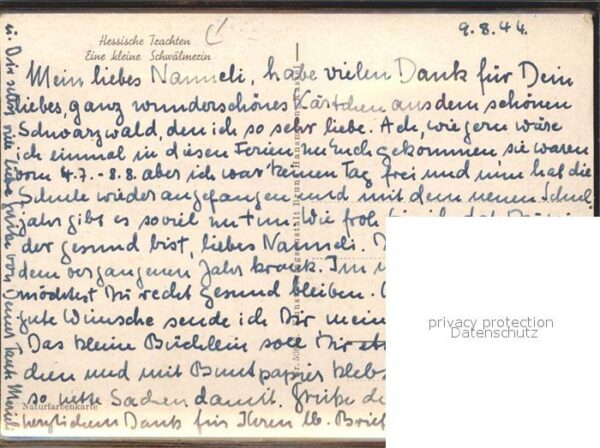 Hessische Trachten
Eine kleine Schwälmerin
9.8.44.
Mein liebes Nanneli, habe vielen Dank für Dein
liebes, ganz wunderschönes Kärtchen aus dem schönen
Schwarzwald, den ich so sehr liebe. Ach, wie gern wäre
ich einmal in diesen Ferien zu Euch gekommen, sie waren
vom 4.7. - 8.8. aber ich war keinen Tag frei und nun hat die
Schule wieder angefangen und mit dem neuen Schul
jahr gibt es soviel zu tun. Wie froh bin ich, daß Du
der gesund bist, liebes Nanneli.
dem vergangenen Jahr krank. Im
möchtest Du recht gesund bleiben.
gute Wünsche sende ich Dir, mein
Das kleine Büchlein soll Dir
chen und mit Buntpapier kleb
so nette Sachen damit. Grüße
herzlichem Dank für Ihren lb. Brief
Naturfarbenkarte
u. Dir selbst viele liebe Grüße von Deiner Tante
privacy protection
Datenschutz